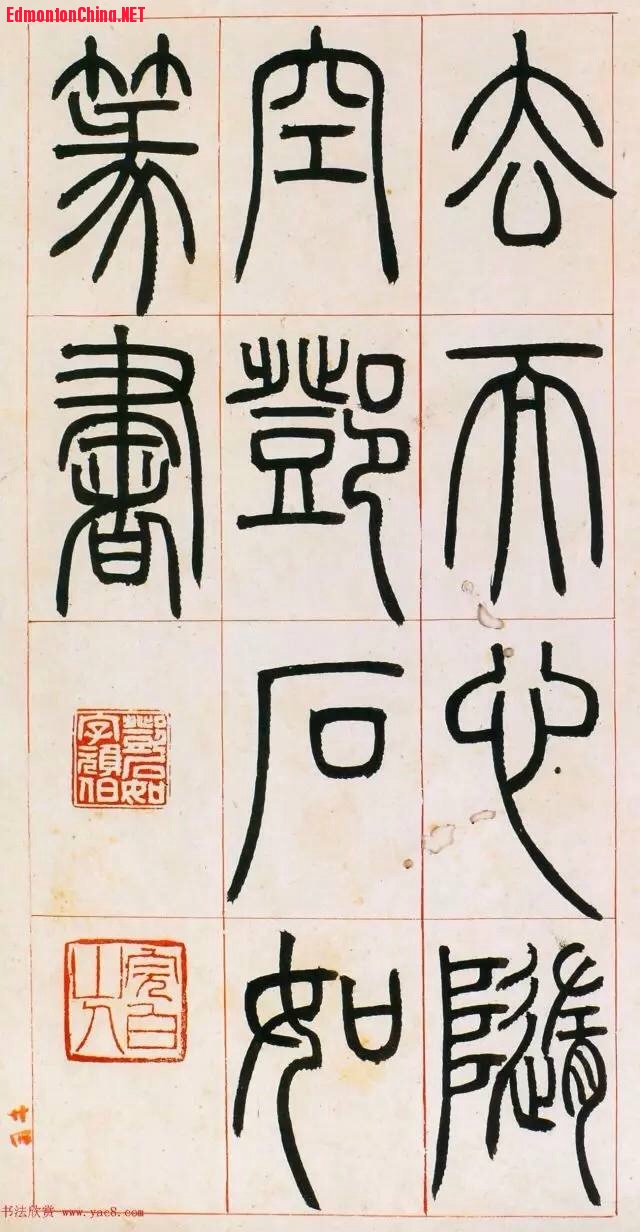 EdmontonChina.NET
去而心隨
空鄧石如
篆書
鄧石如
字頑伯
完白
山人
廿四
书法欣赏 www.yac8.com